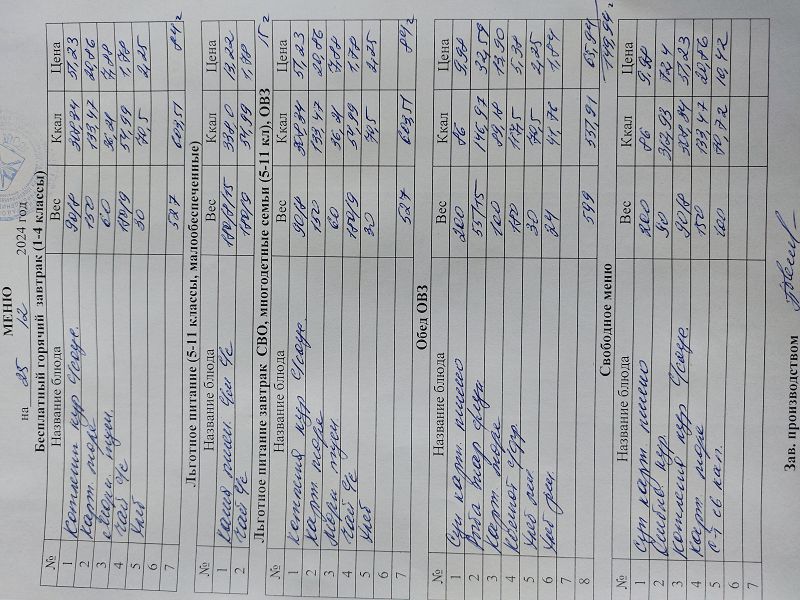 МЕНЮ
на 25 12 2024 год
Бесплатный горячий завтрак (1-4 классы)
№ Название блюда Вес Ккал Цена
1 котлета кур с/соус. 90/8 308,34 51,23
2 карт. пюре 150 133,47 20,86
3 60 36,21 7,88
4 чай с/с 180/9 54,99 1,78
5 хлеб 30 70,5 2,25
6
7 527 603,51 84,
Льготное питание (5-11 классы, малообеспеченные)
№ Название блюда Вес Ккал Цена
1 каша 13,22
2 чай с/с 180/9 54,99 1,78
15
Льготное питание завтрак СВО, многодетные семьи (5-11 кл), ОВЗ
№ Название блюда Вес Ккал Цена
1 котлета кур с/соус. 90/8 308,34 51,23
2 карт. пюре 150 133,47 20,86
3 60 36,21 7,88
4 чай с/с 180/9 54,99 1,78
5 хлеб 30 70,5 2,25
6
7 527 603,51 84,
Обед ОВЗ
№ Название блюда Вес Ккал Цена
1 Суп карт. пшено 200 86 9,98
2 55/45 146,97 32,59
3 карт. пюре 100 13,90
4 180 5,38
5 хлеб 30 70,5 2,25
6 хлеб рж. 24 41,76 1,84
7
8 599 557,91 65,94
Свободное меню
№ Название блюда Вес Ккал Цена
1 Суп карт. пшено 200 86 9,98
2 кур. 90 72,4
3 котлета кур с/соус. 90/8 308,34 51,23
4 карт. пюре 150 133,47 20,86
5 с-т св кап. 100 70,72 10,42
6
Зав. производством